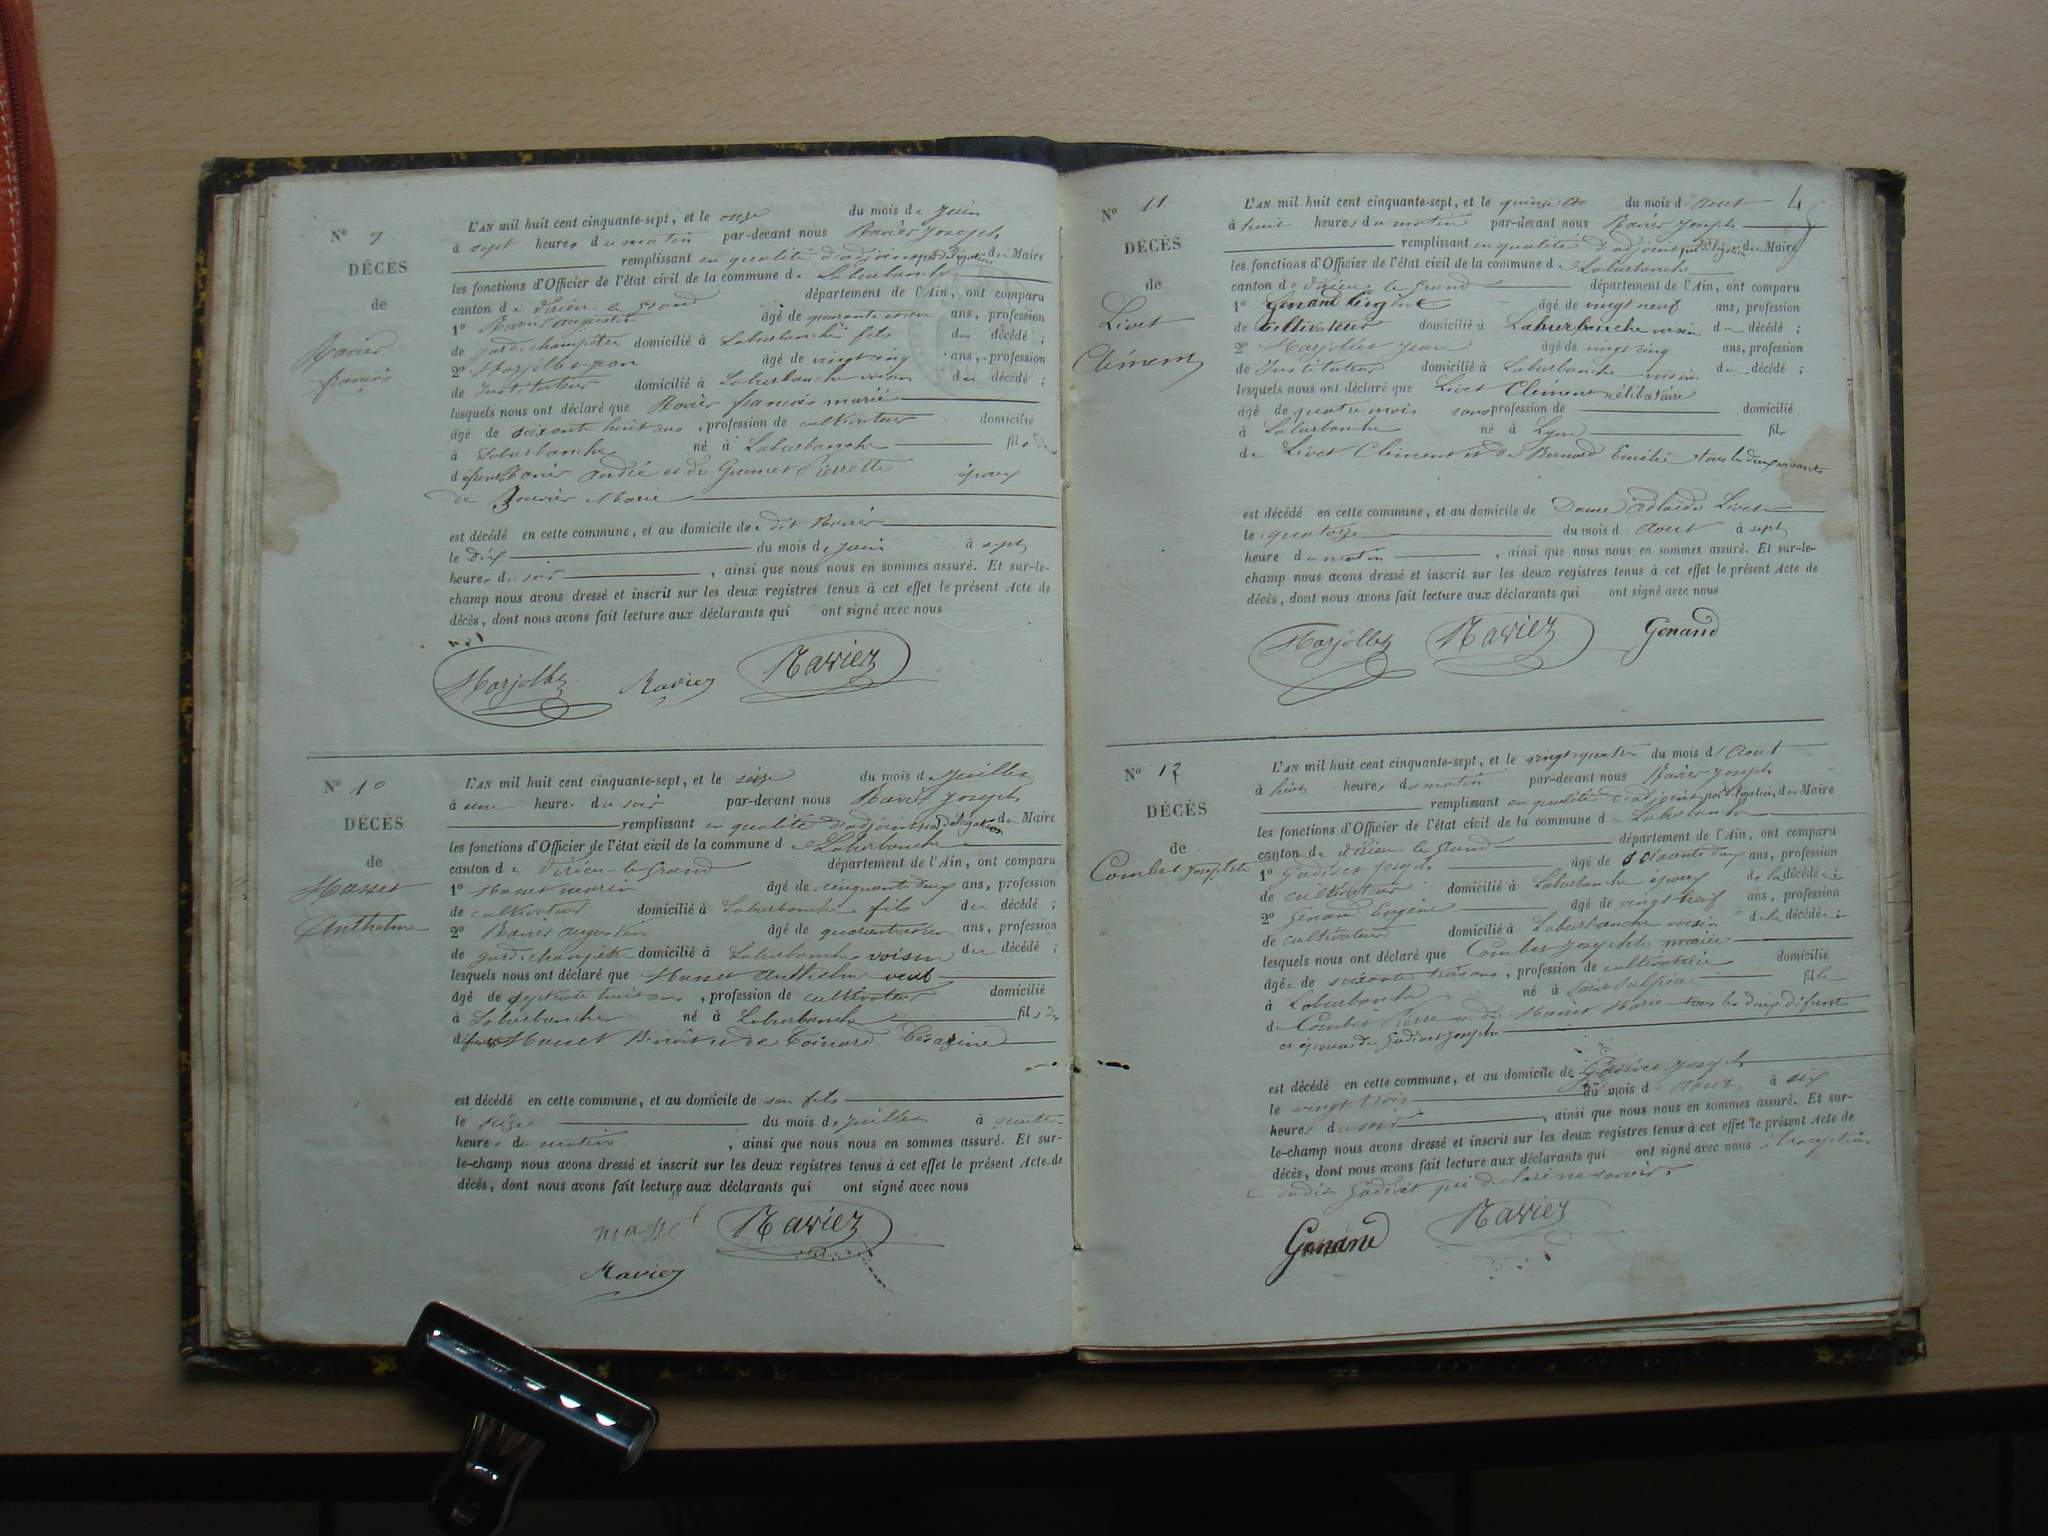 N° 9
DÉCÈS
de
Ravier
françois
L'AN mil huit cent cinquante-sept, et le onze du mois de juin
à sept heures du matin par-devant nous Ravier Joseph
remplissant en qualité d'adjoint par Délégation du Maire
les fonctions d'Officier de l'état civil de la commune de Laburbanche
canton de Virieu le Grand département de l'Ain, ont comparu
1° Ravier augustin âgé de quarante ans, profession
de garde champêtre domicilié à Laburbanche fils du décédé ;
2° Marjollet jean âgé de vingt cinq ans, profession
de Instituteur domicilié à Laburbanche voisin du décédé ;
lesquels nous ont déclaré que Ravier françois marié
âgé de soixante huit ans, profession de cultivateur domicilié
à Laburbanche né à Laburbanche fils de
défunt Ravier André et de Grumet Pierrette époux
de Bouvier Marie
est décédé en cette commune, et au domicile de dit Ravier
le dix du mois de juin à sept
heures du soir, ainsi que nous nous en sommes assuré. Et sur-le-
champ nous avons dressé et inscrit sur les deux registres tenus à cet effet le présent Acte de
décès, dont nous avons fait lecture aux déclarants qui ont signé avec nous
Marjollet Ravier Ravier
N° 10
DÉCÈS
de
Masset
Anthelme
L'AN mil huit cent cinquante-sept, et le seize du mois de juillet
à une heures du soir par-devant nous Ravier Joseph
remplissant en qualité d'adjoint par Délégation du Maire
les fonctions d'Officier de l'état civil de la commune de Laburbanche
canton de Virieu le Grand département de l'Ain, ont comparu
1° Masset marin âgé de cinquante deux ans, profession
de cultivateur domicilié à Laburbanche fils du décédé ;
2° Ravier augustin âgé de quarante ans, profession
de garde champêtre domicilié à Laburbanche voisin du décédé ;
lesquels nous ont déclaré que Masset Anthelme veuf
âgé de septante huit ans, profession de cultivateur domicilié
à Laburbanche né à Laburbanche fils de
défunt Masset Benoît et de Coinard Césarine
est décédé en cette commune, et au domicile de son fils
le seize du mois de juillet à quatre
heures du matin, ainsi que nous nous en sommes assuré. Et sur-
le-champ nous avons dressé et inscrit sur les deux registres tenus à cet effet le présent Acte de
décès, dont nous avons fait lecture aux déclarants qui ont signé avec nous
massé Ravier
Ravier
4
N° 11
DÉCÈS
de
Livet
Clément
L'AN mil huit cent cinquante-sept, et le quinze du mois d'Aout
à huit heures du matin par-devant nous Ravier Joseph
remplissant en qualité d'adjoint par délégation du Maire
les fonctions d'Officier de l'état civil de la commune de Laburbanche
canton de Virieu le Grand département de l'Ain, ont comparu
1° Genand Eugène âgé de vingt neuf ans, profession
de cultivateur domicilié à Laburbanche voisin du décédé ;
2° Marjollet Jean âgé de vingt cinq ans, profession
de Instituteur domicilié à Laburbanche voisin du décédé ;
lesquels nous ont déclaré que Livet Clément célibataire
âgé de quatre mois sans profession de domicilié
à Laburbanche né à Lyon fils
de Livet Clément et de Bernard Emélie tous les deux vivants
est décédé en cette commune, et au domicile de Dame Adelaïde Livet
le quatorze du mois d'Aout à sept
heure du matin, ainsi que nous nous en sommes assuré. Et sur-le-
champ nous avons dressé et inscrit sur les deux registres tenus à cet effet le présent Acte de
décès, dont nous avons fait lecture aux déclarants qui ont signé avec nous
Marjollet Ravier Genand
N° 12
DÉCÈS
de
Combet Josephte
L'AN mil huit cent cinquante-sept, et le vingt quatre du mois d'Aout
à huit heures du matin par-devant nous Ravier Joseph
remplissant en qualité d'adjoint par délégation du Maire
les fonctions d'Officier de l'état civil de la commune de Laburbanche
canton de Virieu le Grand département de l'Ain, ont comparu
1° Gadivet Joseph âgé de soixante deux ans, profession
de cultivateur domicilié à Laburbanche époux de la décédée ;
2° Genand Eugène âgé de vingt neuf ans, profession
de cultivateur domicilié à Laburbanche voisin de la décédée ;
lesquels nous ont déclaré que Combet Josephte mariée
âgée de soixante trois ans, profession de cultivatrice domicilié
à Laburbanche né à Saint Sulpice fille
de Combet Pierre et de Masset Marie tous les deux défunts
et épouse de Gadivet Joseph
est décédé en cette commune, et au domicile de Gadivet Joseph
le vingt trois du mois d'Aout à six
heures du soir, ainsi que nous nous en sommes assuré. Et sur-
le-champ nous avons dressé et inscrit sur les deux registres tenus à cet effet le présent Acte de
décès, dont nous avons fait lecture aux déclarants qui ont signé avec nous à l'exception
du dit Gadivet qui a déclaré ne savoir.
Genand Ravier